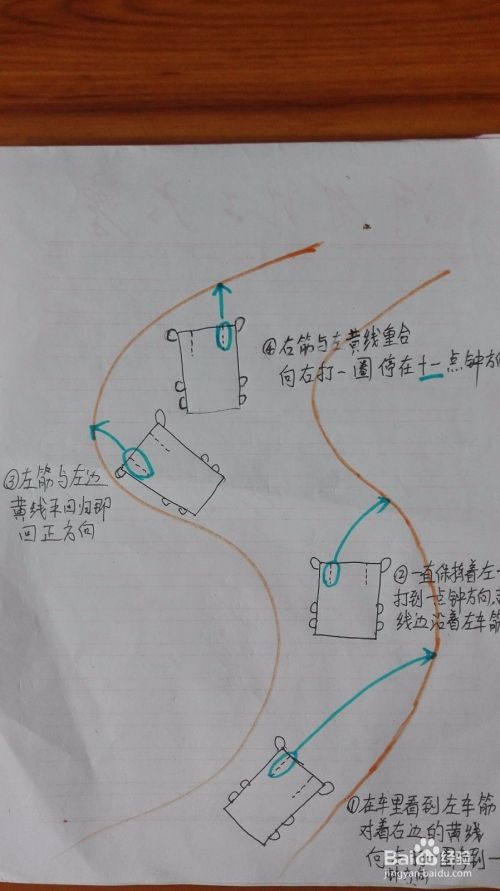 ④右筋与左黄线重合
向右打一圈 停在十一点钟方
③左筋与左边
黄线
回正方向
②一直保持着左
打到一点钟方向
线边沿着左车筋
①在车里看到左车筋
对着右边的黄线
Baidu经验
jingyan.baidu.com